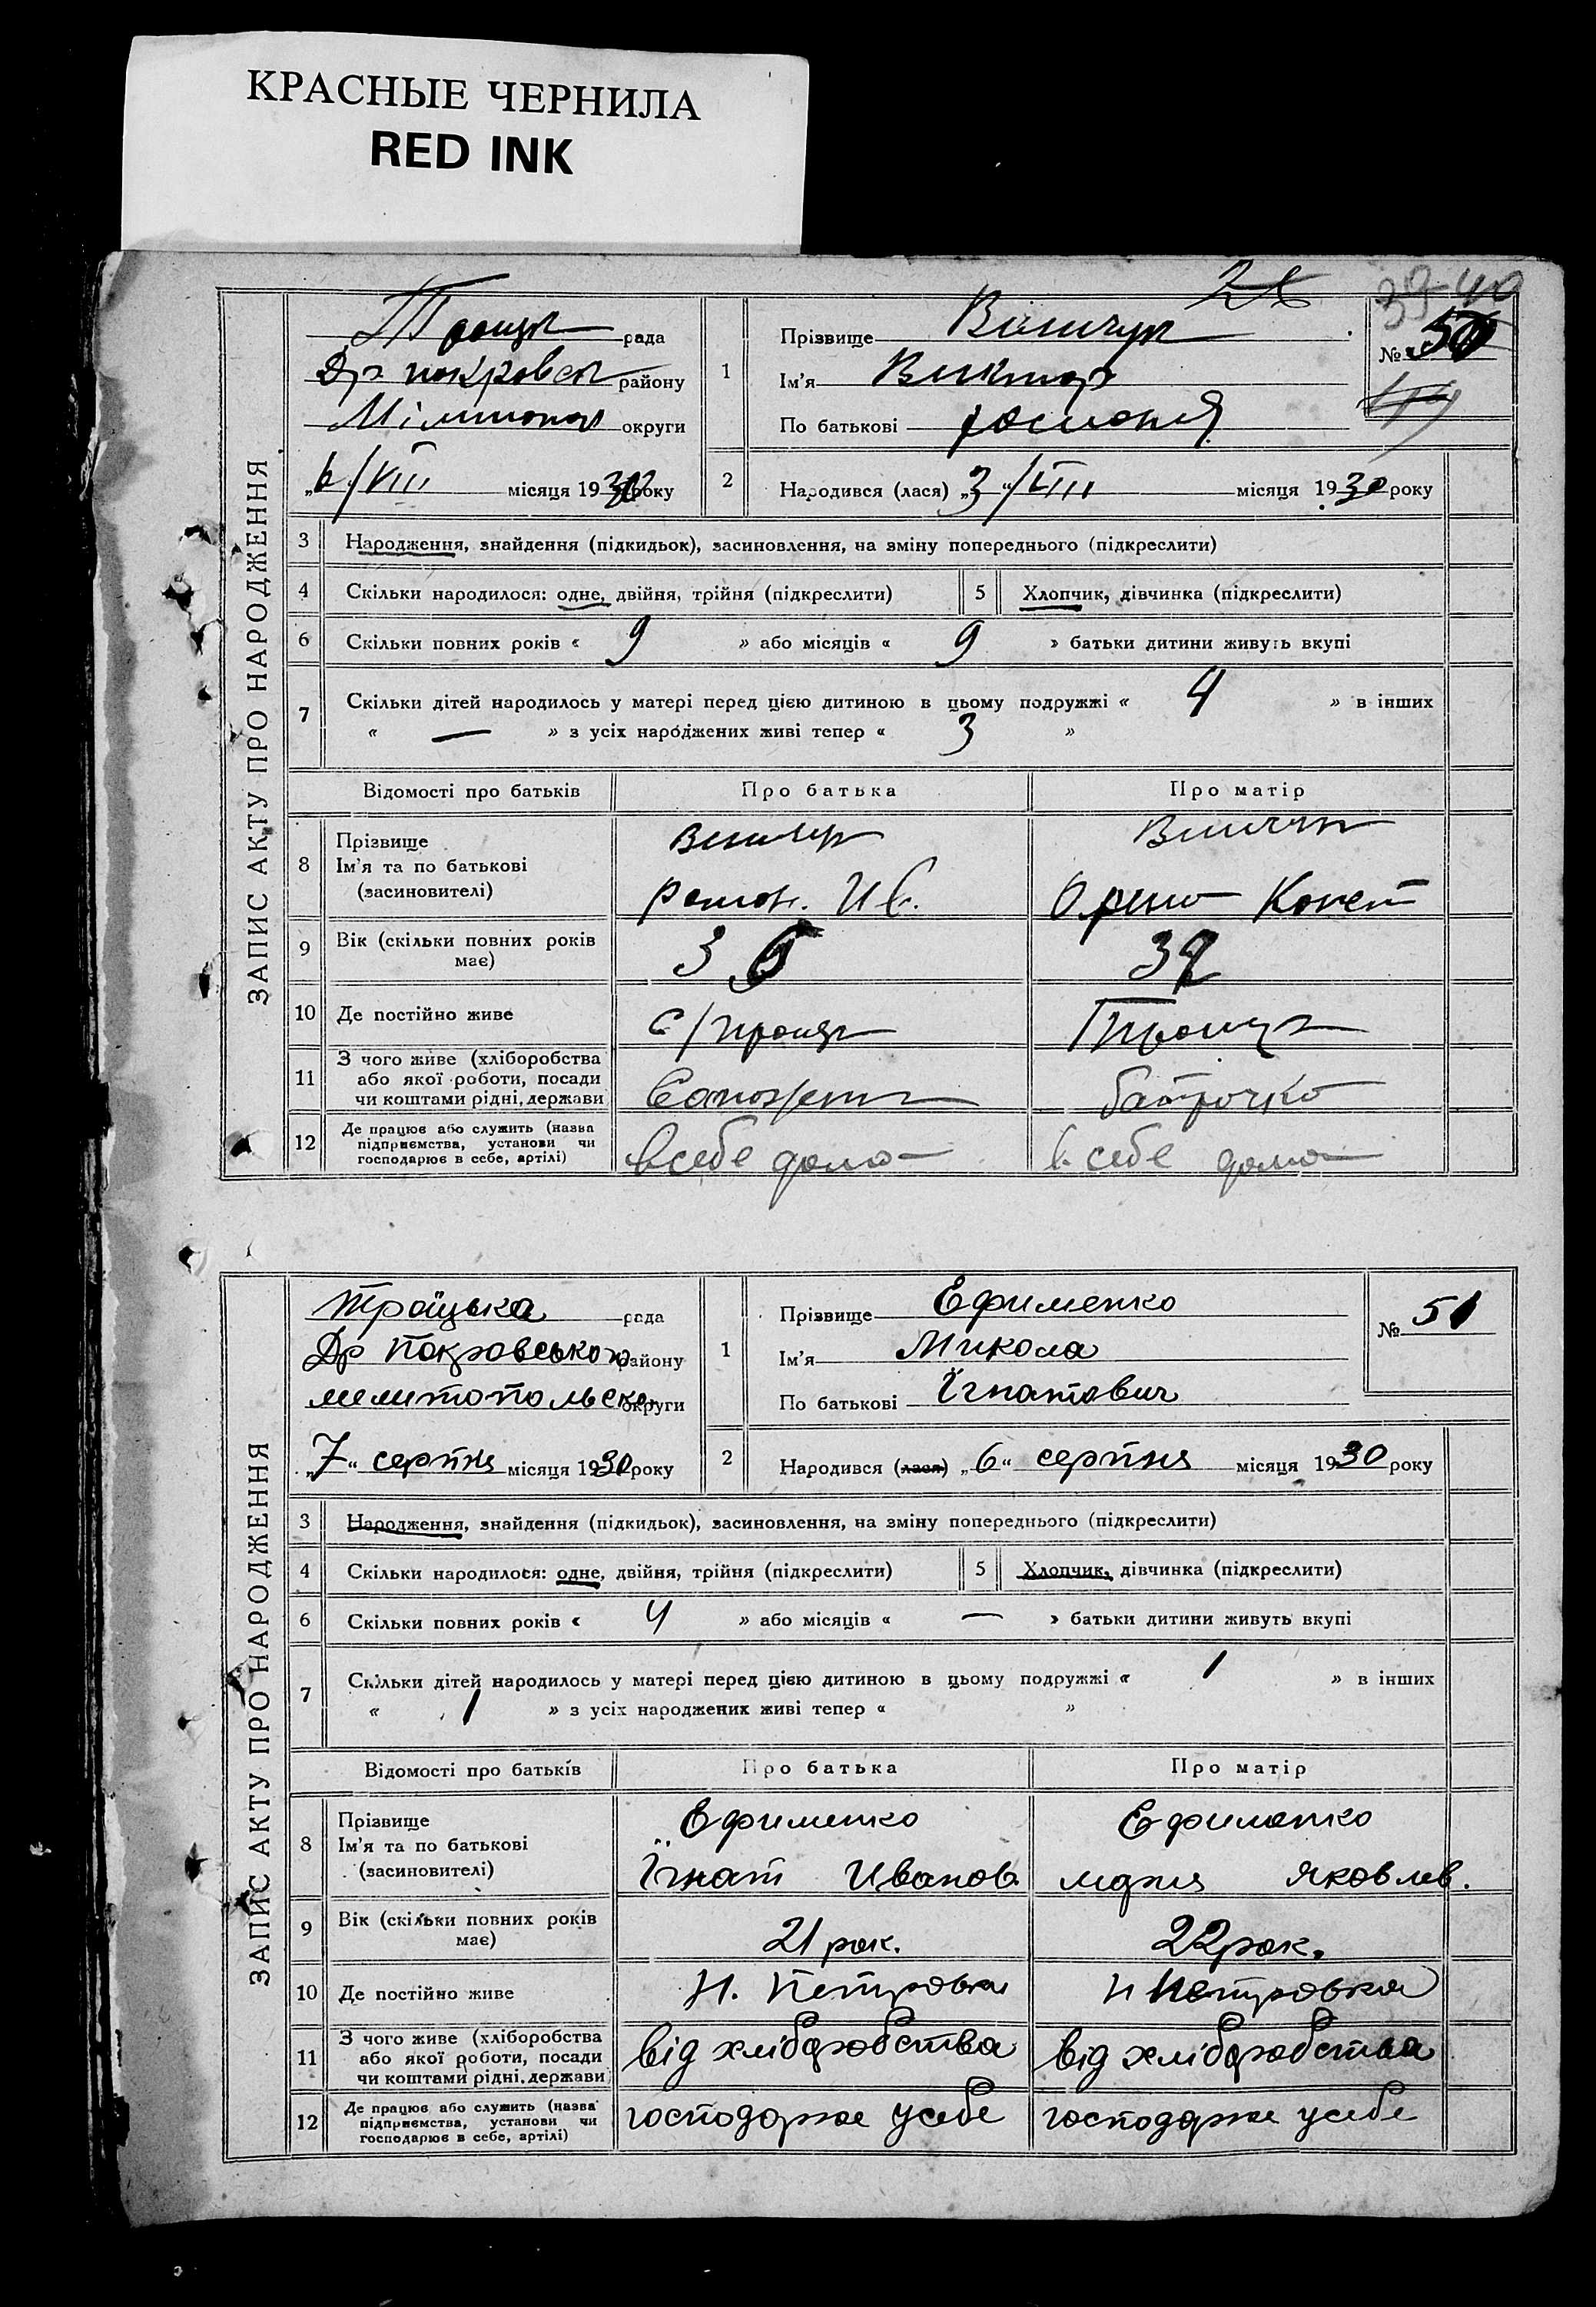 КРАСНЫЕ ЧЕРНИЛА
RED INK
39-40
ЗАПИС АКТУ ПРО НАРОДЖЕННЯ
рада
Др покровськ району
округи
„6/VIII місяця 1930 року
1
Прізвище
Ім'я Виктор
По батькові
№ 50
2
Народився (лася) „3“/VIII місяця 1930 року
3 Народження, знайдення (підкидьок), засиновлення, на зміну попереднього (підкреслити)
4 Скільки народилося: одне, двійня, трійня (підкреслити)
5 Хлопчик, дівчинка (підкреслити)
6 Скільки повних років « 9 » або місяців « 9 » батьки дитини живуть вкупі
7 Скільки дітей народилось у матері перед цією дитиною в цьому подружжі « 4 » в інших
« — » з усіх народжених живі тепер « 3 »
Відомості про батьків Про батька Про матір
8 Прізвище
Ім'я та по батькові
(засиновителі)
9 Вік (скільки повних років
має)
10 Де постійно живе
11 З чого живе (хліборобства
або якої роботи, посади
чи коштами рідні, держави
12 Де працює або служить (назва
підприємства, установи чи
господарює в себе, артілі)
в себе дома в себе дома
ЗАПИС АКТУ ПРО НАРОДЖЕННЯ
Троїцька рада
Др Покровського району
мелитопольско. округи
„7“ серпня місяця 1930 року
1
Прізвище Ефименко
Ім'я Микола
По батькові Їгнатович
№ 51
2
Народився (лася) „6“ серпня місяця 1930 року
3 Народження, знайдення (підкидьок), засиновлення, на зміну попереднього (підкреслити)
4 Скільки народилося: одне, двійня, трійня (підкреслити)
5 Хлопчик, дівчинка (підкреслити)
6 Скільки повних років « 4 » або місяців « — » батьки дитини живуть вкупі
7 Скільки дітей народилось у матері перед цією дитиною в цьому подружжі « 1 » в інших
« 1 » з усіх народжених живі тепер « »
Відомості про батьків Про батька Про матір
8 Прізвище
Ім'я та по батькові
(засиновителі)
Ефименко Ефименко
Їгнат Иванов. Яковлев.
9 Вік (скільки повних років
має)
21 рок. 22 рок.
10 Де постійно живе Н. Петровка Н Петровка
11 З чого живе (хліборобства
або якої роботи, посади
чи коштами рідні, держави
від хліборобства від хліборобства
12 Де працює або служить (назва
підприємства, установи чи
господарює в себе, артілі)
господарює усебе господарює усебе